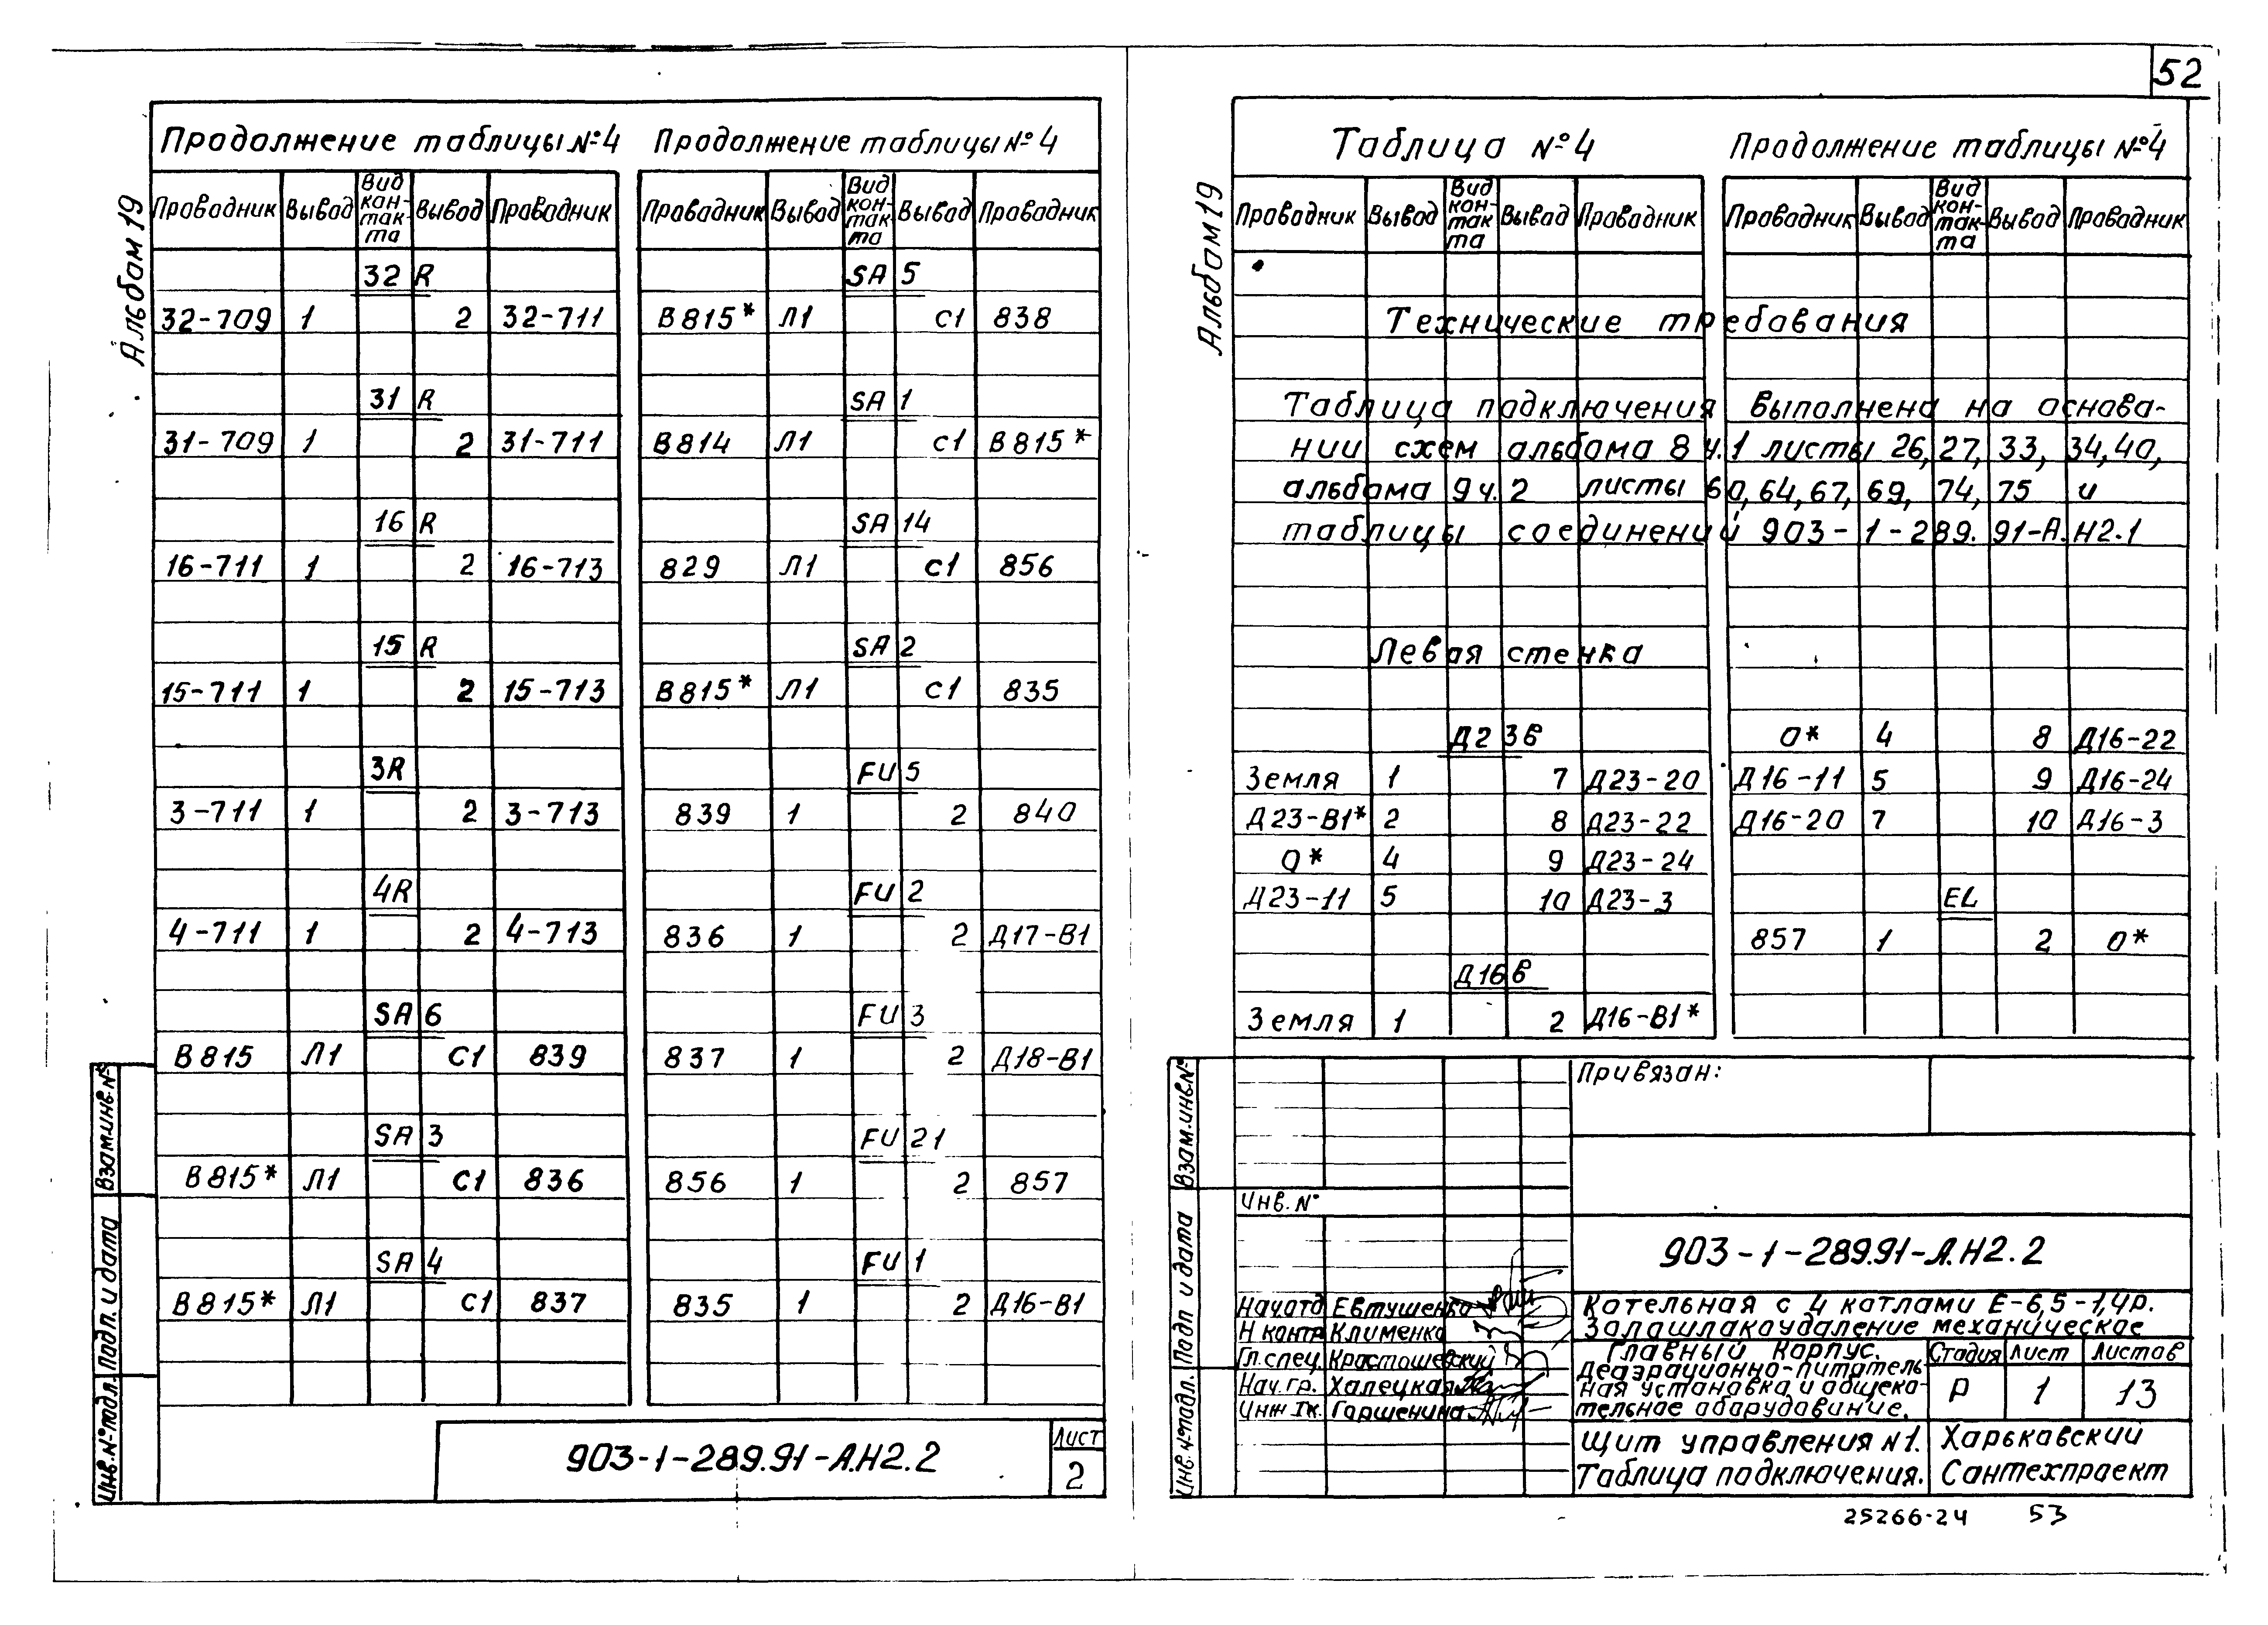 52
Альбом 19
Продолжение таблицы №4
Проводник Вывод Вид кон-так-та Вывод Проводник
32R
32-709 1 2 32-711
31R
31-709 1 2 31-711
16R
16-711 1 2 16-713
15R
15-711 1 2 15-713
3R
3-711 1 2 3-713
4R
4-711 1 2 4-713
SA6
В815 Л1 С1 839
SA3
В815* Л1 С1 836
SA4
В815* Л1 С1 837
Продолжение таблицы №4
Проводник Вывод Вид кон-так-та Вывод Проводник
SA5
В815* Л1 С1 838
SA1
В814 Л1 С1 В815*
SA14
829 Л1 С1 856
SA2
В815* Л1 С1 835
FU5
839 1 2 840
FU2
836 1 2 Д17-В1
FU3
837 1 2 Д18-В1
FU21
856 1 2 857
FU1
835 1 2 Д16-В1
Взам.инв.№
Подп. и дата
Инв.№подл.
903-1-289.91-А.Н2.2
Лист
2
Альбом 19
Таблица №4 Продолжение таблицы №4
Проводник Вывод Вид кон-так-та Вывод Проводник
Проводник Вывод Вид кон-так-та Вывод Проводник
Технические требования
Таблица подключения выполнена на основа-
нии схем альбома 8 ч.1 листы 26, 27, 33, 34, 40,
альбома 9 ч.2 листы 60, 64, 67, 69, 74, 75 и
таблицы соединений 903-1-289.91-А.Н2.1
Левая стенка
Д23В
Земля 1 7 Д23-20
Д23-В1* 2 8 Д23-22
0* 4 9 Д23-24
Д23-11 5 10 Д23-3
Д16В
Земля 1 2 Д16-В1*
0* 4 8 Д16-22
Д16-11 5 9 Д16-24
Д16-20 7 10 Д16-3
EL
857 1 2 0*
Взам.инв.№
Подп и дата
Инв.№подл.
Привязан:
Инв.№
903-1-289.91-А.Н2.2
Нач.отд Евтушенко
Н контр Клименко
Гл.спец. Кростошевский
Нач.гр. Халецкая
Инж Iк. Гаршенина
Котельная с 4 котлами Е-6,5-1,4р.
Золошлакоудаление механическое
Главный корпус.
Деаэрационно-питатель-
ная установка и общеко-
тельное оборудование.
Стадия Лист Листов
Р 1 13
Щит управления №1.
Таблица подключения.
Харьковский
Сантехпроект
25266-24 53